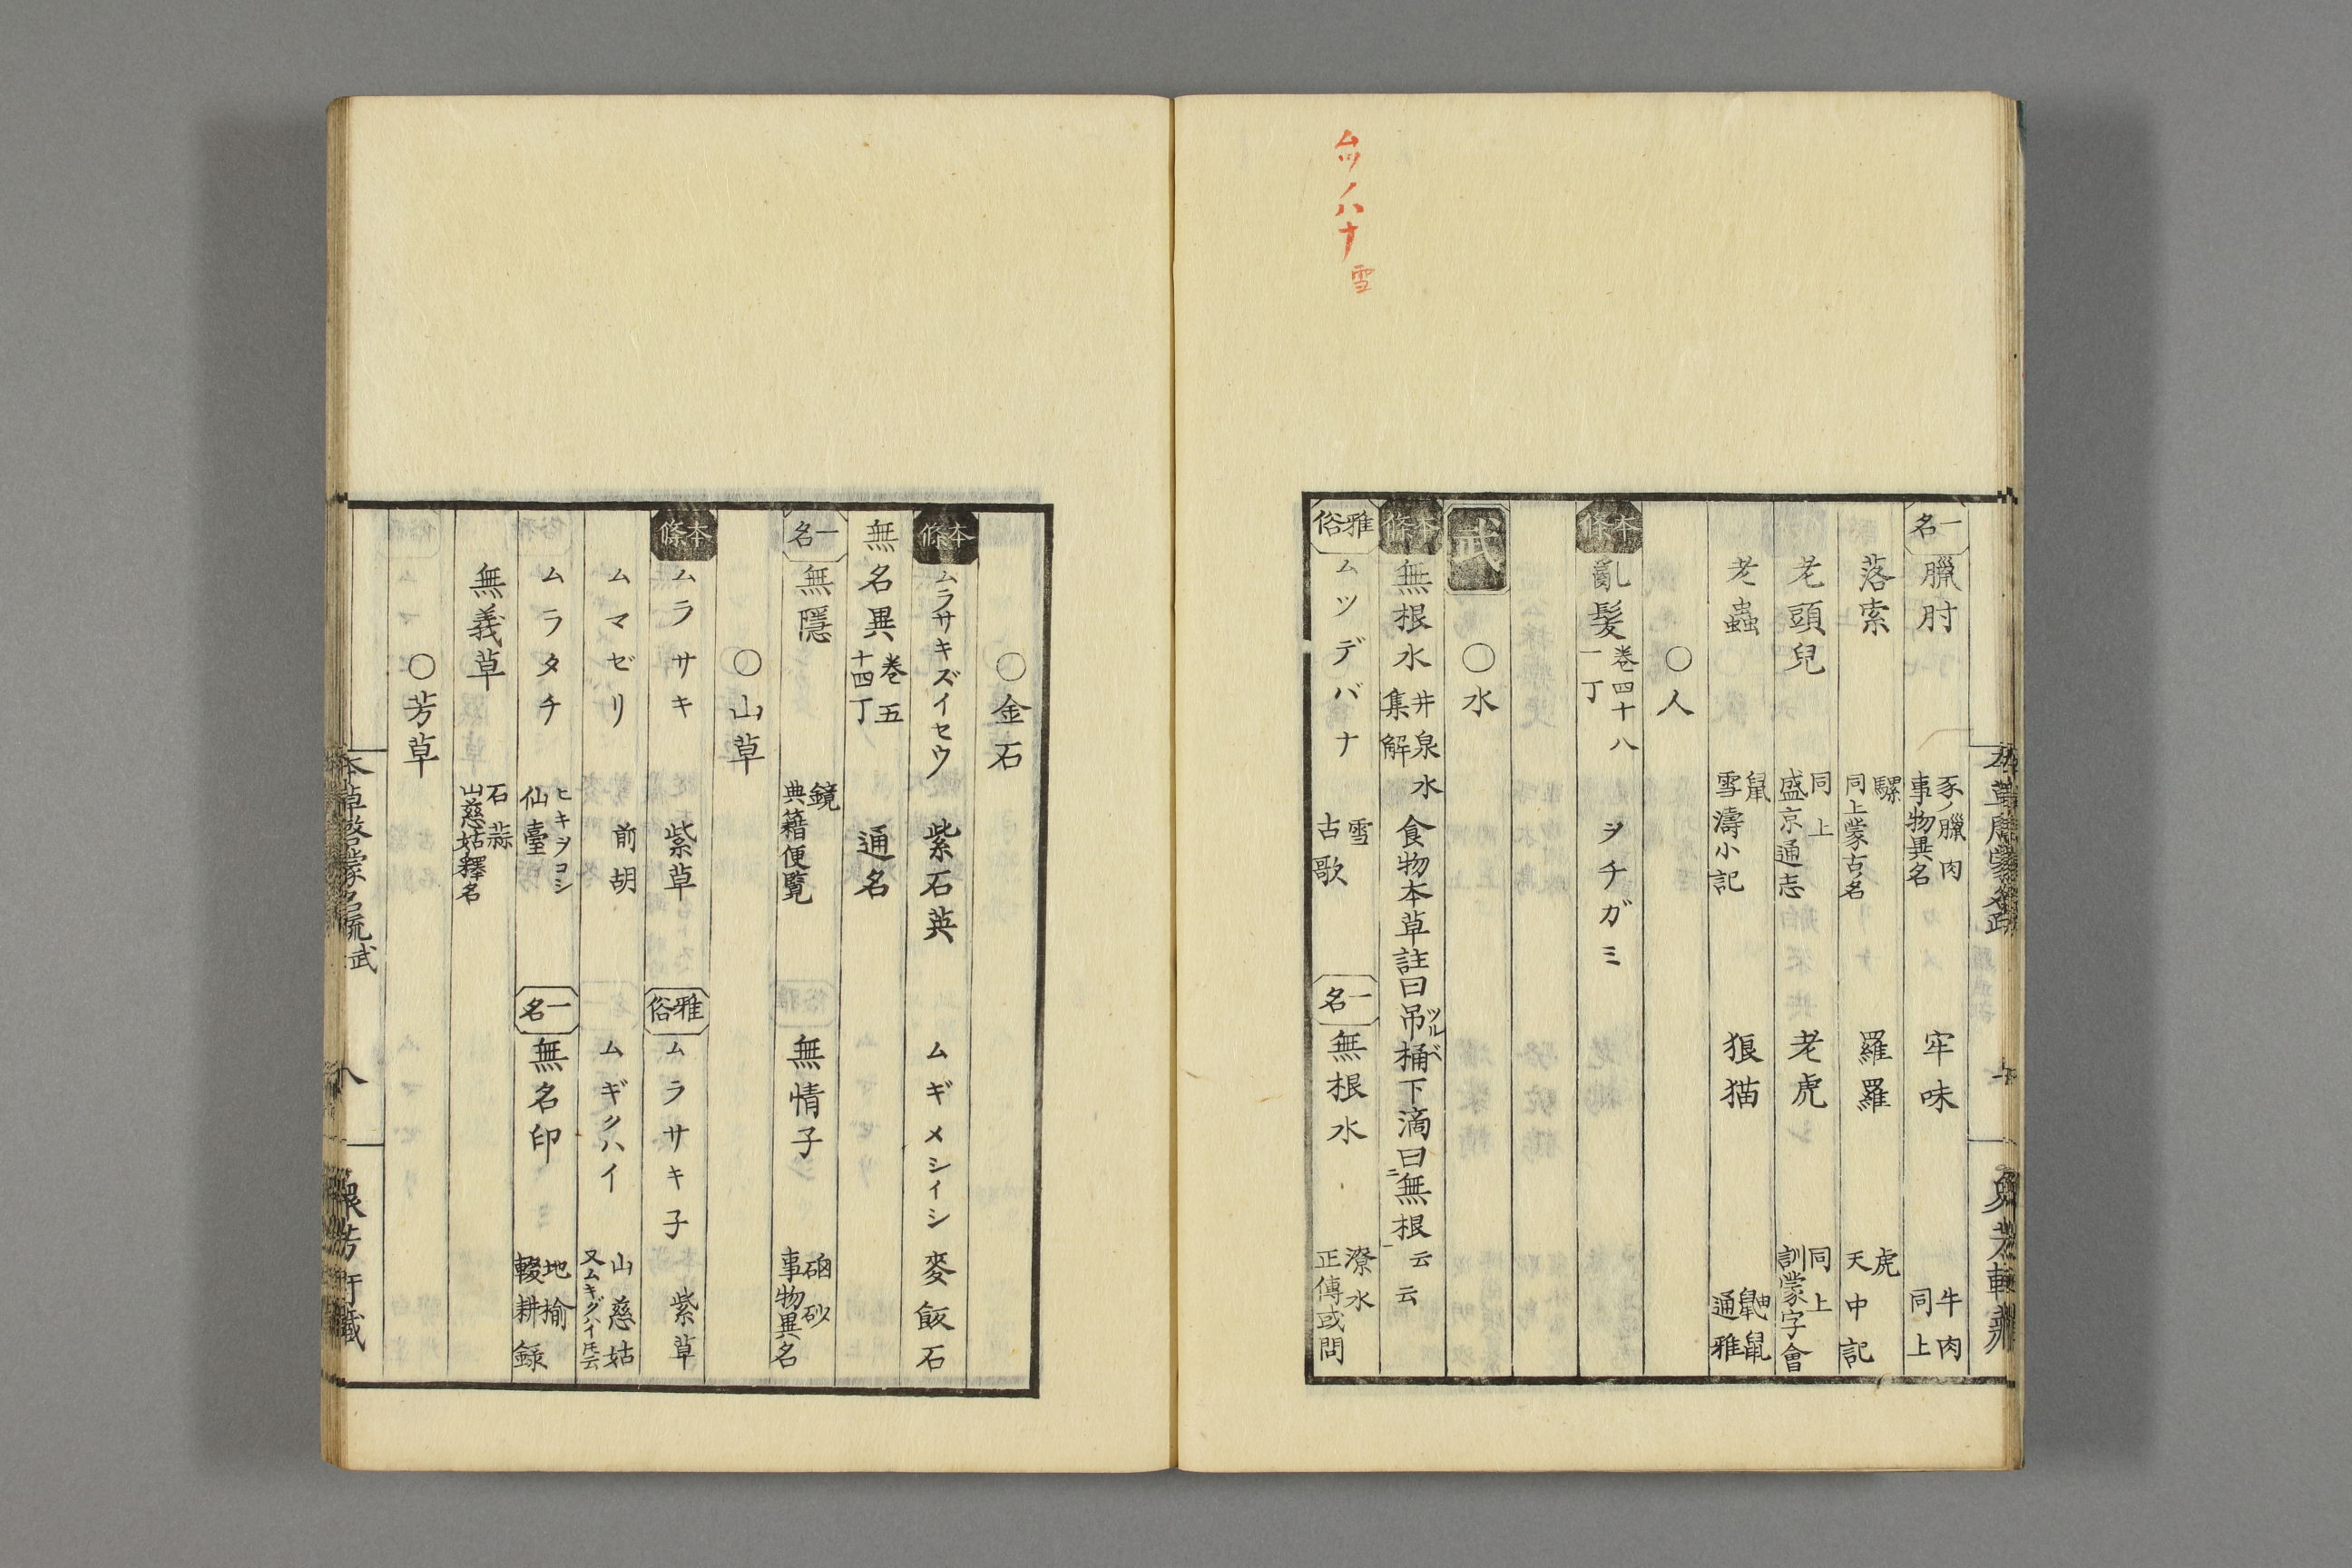 一名 臘肘 豕ノ臘肉 事物異名 牢味 牛肉 同上
落索 騾 同上蒙古名 羅羅 虎 天中記
老頭兒 同上 盛京通志 老虎 同上 訓蒙字會
老蟲 鼠 雪濤小記 狼猫 鼬鼠 通雅
〇人
本條 亂髮 巻四十八 一丁 ヲチガミ
武
〇水
本條 無根水 井泉水 集解 食物本草註曰吊桶下滴曰無根云云
ツルベ
ニ 一
雅俗 ムツデバナ 雪 古歌 一名 無根水 潦水 正傳或問
ムツノハナ 雪
〇金石
本條 ムラサキズイセウ 紫石英 ムギメシイシ 麥飯石
無名異 巻五 十四丁 通名
一名 無隱 鏡 典籍便覧 無情子 硇砂 事物異名
〇山草
本條 ムラサキ 紫草 雅俗 ムラサキ子 紫草
ムマゼリ 前胡 ムギクハイ 山慈姑 又ムキグハイ圧云
ムラタチ ヒキヲコシ 仙臺 一名 無名印 地楡 輟耕録
無義草 石蒜 山慈姑釋名
〇芳草
本草啓蒙名疏 武 八